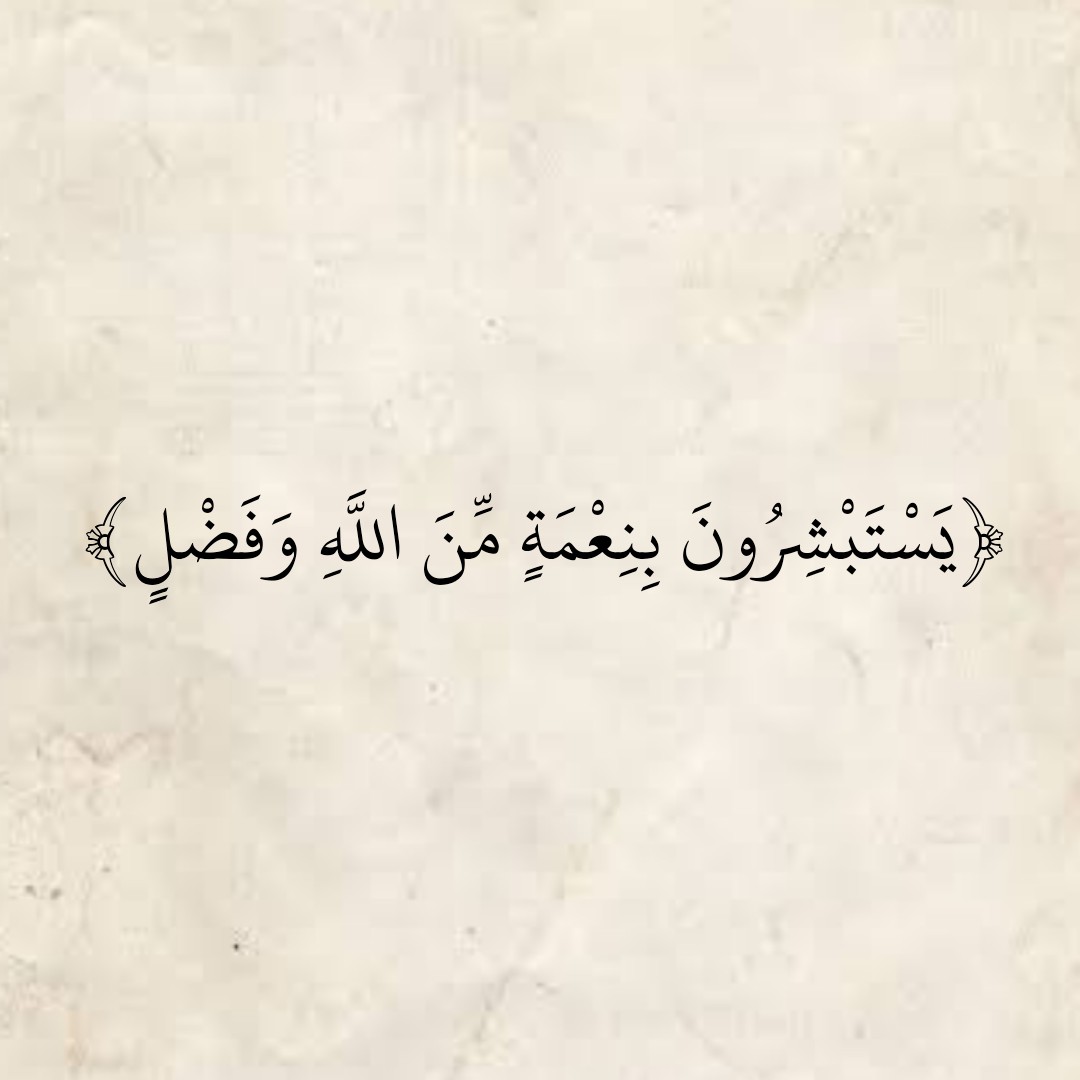 ﴿يَسْتَبْشِرُونَ بِنِعْمَةٍ مِّنَ اللَّهِ وَفَضْلٍ﴾